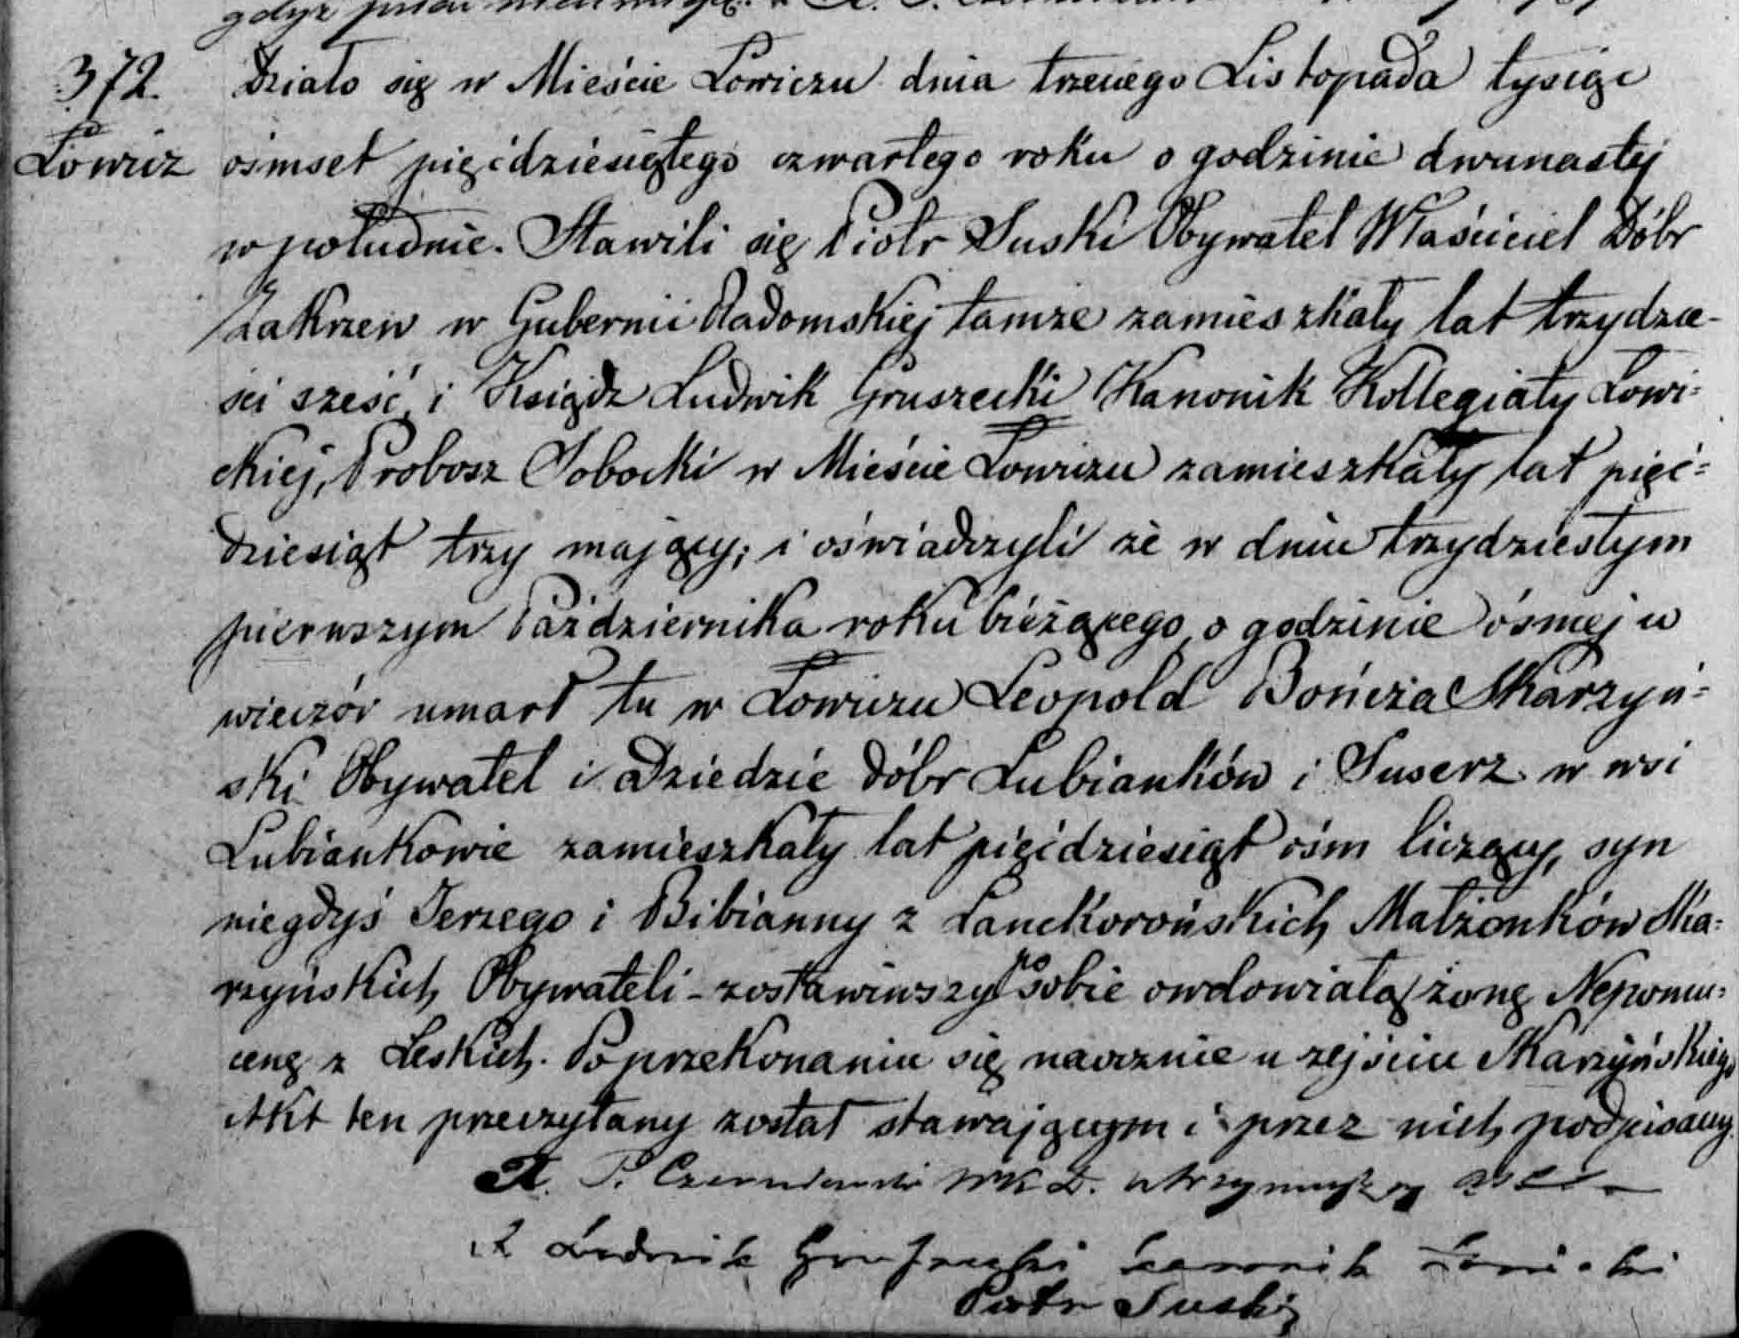 372. Działo się w Mieście Łowiczu dnia trzeciego Listopada tysiąc
Łowicz ośmset pięćdziesiątego czwartego roku o godzinie dwunastej
w południe. Stawili się Piotr Suski Obywatel Właściciel Dóbr
Zakrzew w Gubernii Radomskiej tamże zamieszkały lat trzydzie-
ści sześć i Ksiądz Ludwik Gruszecki Kanonik Kollegiaty Łowi-
ckiej, Probosz Sobocki w Mieście Łowiczu zamieszkały lat pięć=
dziesiąt trzy mający; i oświadczyli że w dniu trzydziestym
pierwszym Października roku bieżącego o godzinie ósmej w
wieczór umarł tu w Łowiczu Leopold Bończa Skarzyń=
ski Obywatel i Dziedzic dóbr Lubianków i Suserz w wsi
Lubiankowie zamieszkały lat pięćdziesiąt ośm liczący, syn
niegdyś Jerzego i Bibianny z Lanckorońskich Małżonków Ska-
rzyńskich Obywateli - zostawiwszy po sobie owdowiałą żonę Nepomu=
cenę z Leskich. Po przekonaniu się naocznie o zejściu Skarzyńskiego
Akt ten przeczytany został stawającym i przez nich podpisany.
X. Ludwik Gruszecki Kanonik Łowicki
Piotr Suski